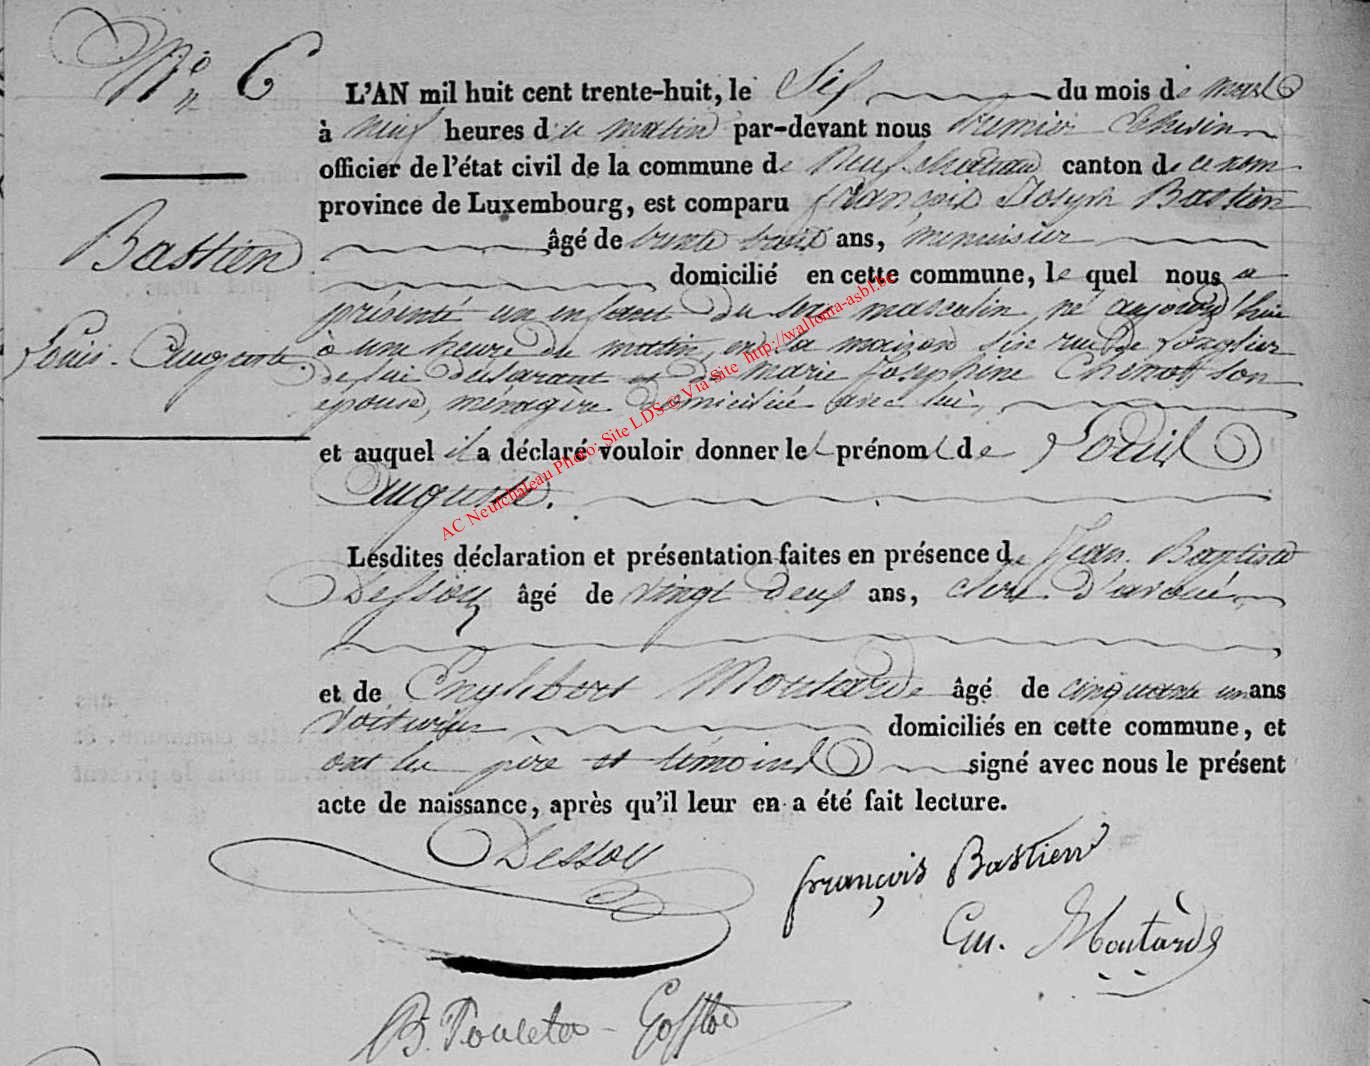 N° 6
L'AN mil huit cent trente-huit, le Six du mois de mars
à neuf heures du matin par-devant nous Premier Echevin
officier de l'état civil de la commune de Neufchâteau canton de ce nom
province de Luxembourg, est comparu François Joseph Bastien
âgé de trente huit ans, menuisier
domicilié en cette commune, le quel nous a
présenté un enfant du sexe masculin, né aujourd'hui
à une heure du matin, en sa maison sise rue de
de lui déclarant et de Marie Josephine Chenot son
épouse, ménagère domiciliée avec lui,
et auquel il a déclaré vouloir donner les prénoms de Louis
Auguste.
Lesdites déclaration et présentation faites en présence de Jean Baptiste
Dessoy âgé de vingt deux ans, clerc d'avoué,
et de Englebert Moutarde âgé de cinquante un ans
voiturier domiciliés en cette commune, et
ont les père et témoins signé avec nous le présent
acte de naissance, après qu'il leur en a été fait lecture.
Bastien
Louis-Auguste
Dessoy
françois Bastien
En. Moutarde
B. Pouleta - Gofflot
AC Neufchateau Photo: Site LDS © Via Site http://wallonia-asbl.be